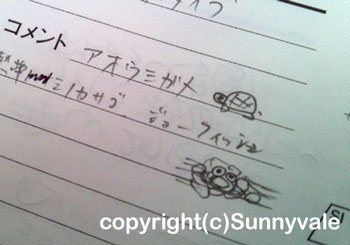 コメント アオウミガメ
ミノカサゴ、ジョーフィッシュ
copyright(c)Sunnyvale